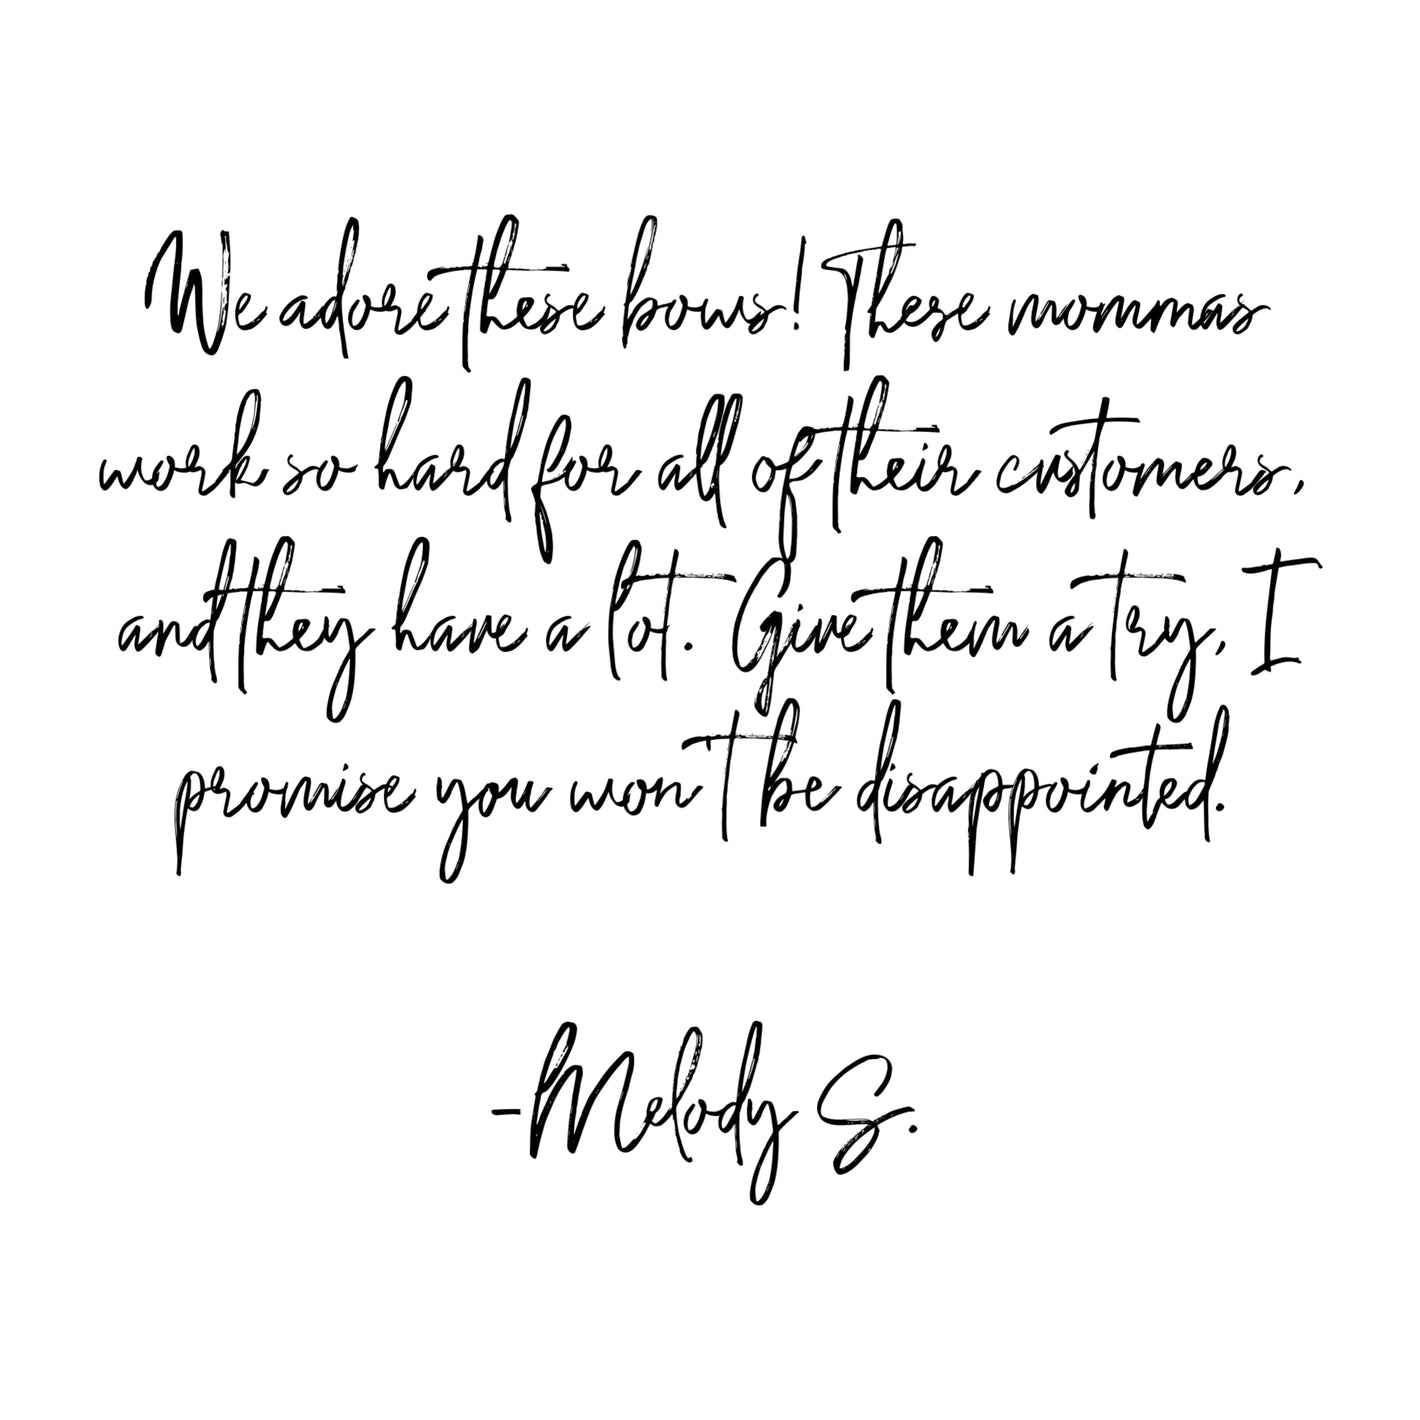 We adore these bows! These mommas
work so hard for all of their customers,
and they have a lot. Give them a try, I
promise you won't be disappointed.
-Melody S.